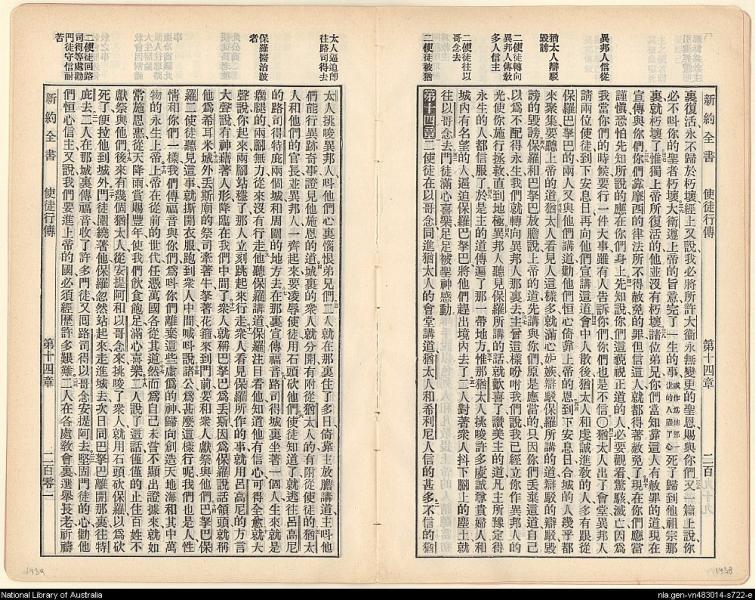 新約全書　使徒行傳　第十四章
異邦人信從
猶太人辯駁毀謗
二使徒轉向異邦人傳敎多人信主
二使徒往以哥念去
二使徒被猶
裏復活永不歸於朽壞經上又說我必將所許大衛永無變更的聖恩賜與你們又一篇上說你
必不叫你的聖者朽壞大衛遵上帝的旨意完了一生的事或作爲那一世的人盡了心死了歸到他祖宗那
裏就朽壞了惟獨上帝所復活的他並沒有朽壞諸位弟兄你們當知靠這人有赦罪的道現在
宣傳與你們你們靠摩西的律法所不得赦免的罪但信這人就都得著赦免了現在你們應當
謹愼恐怕先知所說的應在你們身上先知說你們這藐視正道的人必要觀看驚駭滅亡因爲
我當你們的時候要行一件大事雖有人告訴你們你們也是不信○猶太人出了會堂異邦人
請兩位使徒到下安息日再向他們宣講這道會中人散後猶太人和虔誠進敎的人多有跟從
保羅巴拏巴的兩人又與他們講道勸他們恒心倚靠上帝的恩到下安息日合城的人幾乎都
來聚集要聽上帝的道猶太人看見人這樣多就滿心嫉妬辯駁保羅所講的道辯駁毀
謗的毀謗保羅和巴拏巴放膽說上帝的道先講與你們原是應當的只因你們丟棄這道自己
以爲不配得永生我們就轉向異邦人那裏去主曾這樣吩咐我們說我已經立你作異邦人的
光使你施行拯救直到地極異邦人聽見保羅所講的話就歡喜了讚美主的道凡主所豫定得
永生的人都信服了於是主的道傳遍了那一帶地方惟那猶太人挑唆許多虔誠尊貴婦人和
城內有名望的人逼迫保羅巴拏巴將他們趕出境內去了二人對著衆人抖下腳上的塵土就
往以哥念去門徒滿心喜樂足足被聖神感動
第十四章二使徒在以哥念同進猶太人的會堂講道猶太人和希利尼人信的甚多不信的猶
太人逼迫卽往路司得去
保羅醫治跛者
二使徒回路司得等處勸門徒守信耐苦
太人挑唆異邦人叫他們心裏惱恨弟兄們二人就在那裏住了多日倚靠主放膽講道主叫他
們能行異跡奇事證見他施恩的道城裏的衆人就分開有附從猶太人的有附從使徒的猶太
人和他們的官長並異邦人一齊起來要凌辱使徒用石頭砍他們使徒知道了就逃往呂高尼
的路司得特庇兩個城和周圍的地方去在那裏宣傳福音路司得城裏坐著一個人生來就是
瘸腿的兩腳無力從來沒有行走他聽保羅講道保羅注目看他知道他有信心可得全愈就大
聲說你起來兩腳站穩了那人立刻跳起來行走衆人看見保羅所作的事就用呂高尼的方言
大聲說有神藉著人形降臨在我們中間了衆人就稱巴拏巴爲丟斯因爲保羅說話領頭就稱
他爲希耳米城外丟斯廟的祭司牽著牛拏著花箍來到門前要和衆人獻祭與他們巴拏巴保
羅二使徒聽見這事就撕開衣服跑到衆人中間喊叫說諸公爲甚麼這樣行呢我們也是人性
情和你們一樣我們傳福音與你們爲叫你們離棄這些虛僞的神歸向創造天地海和其中萬
物的永生上帝上帝在從前的世代任憑萬國各從其道然而爲自己未嘗不顯出證據來就如
常施恩惠從天降雨賞賜豐年使我們飲食飽足滿心喜樂二人說了這話僅僅的止住百姓不
獻祭與他們後來有幾個猶太人從安提阿和以哥念來挑唆了衆人就用石頭砍保羅以爲砍
死了便拉他到城外門徒圍繞著他保羅忽然站起來走進城去次日同巴拏巴離開那裏往特
庇去二人在那城裏傳福音收了許多門徒又回路司得以哥念安提阿去堅固門徒的心勸他
們恒心信主又說我們要進上帝的國必須經歷許多艱難二人在各處敎會裏選舉長老祈禱
新約全書　使徒行傳　第十四章　二百零一
1939
1938
National Library of Australia
nla.gen-vn483014-s722-e